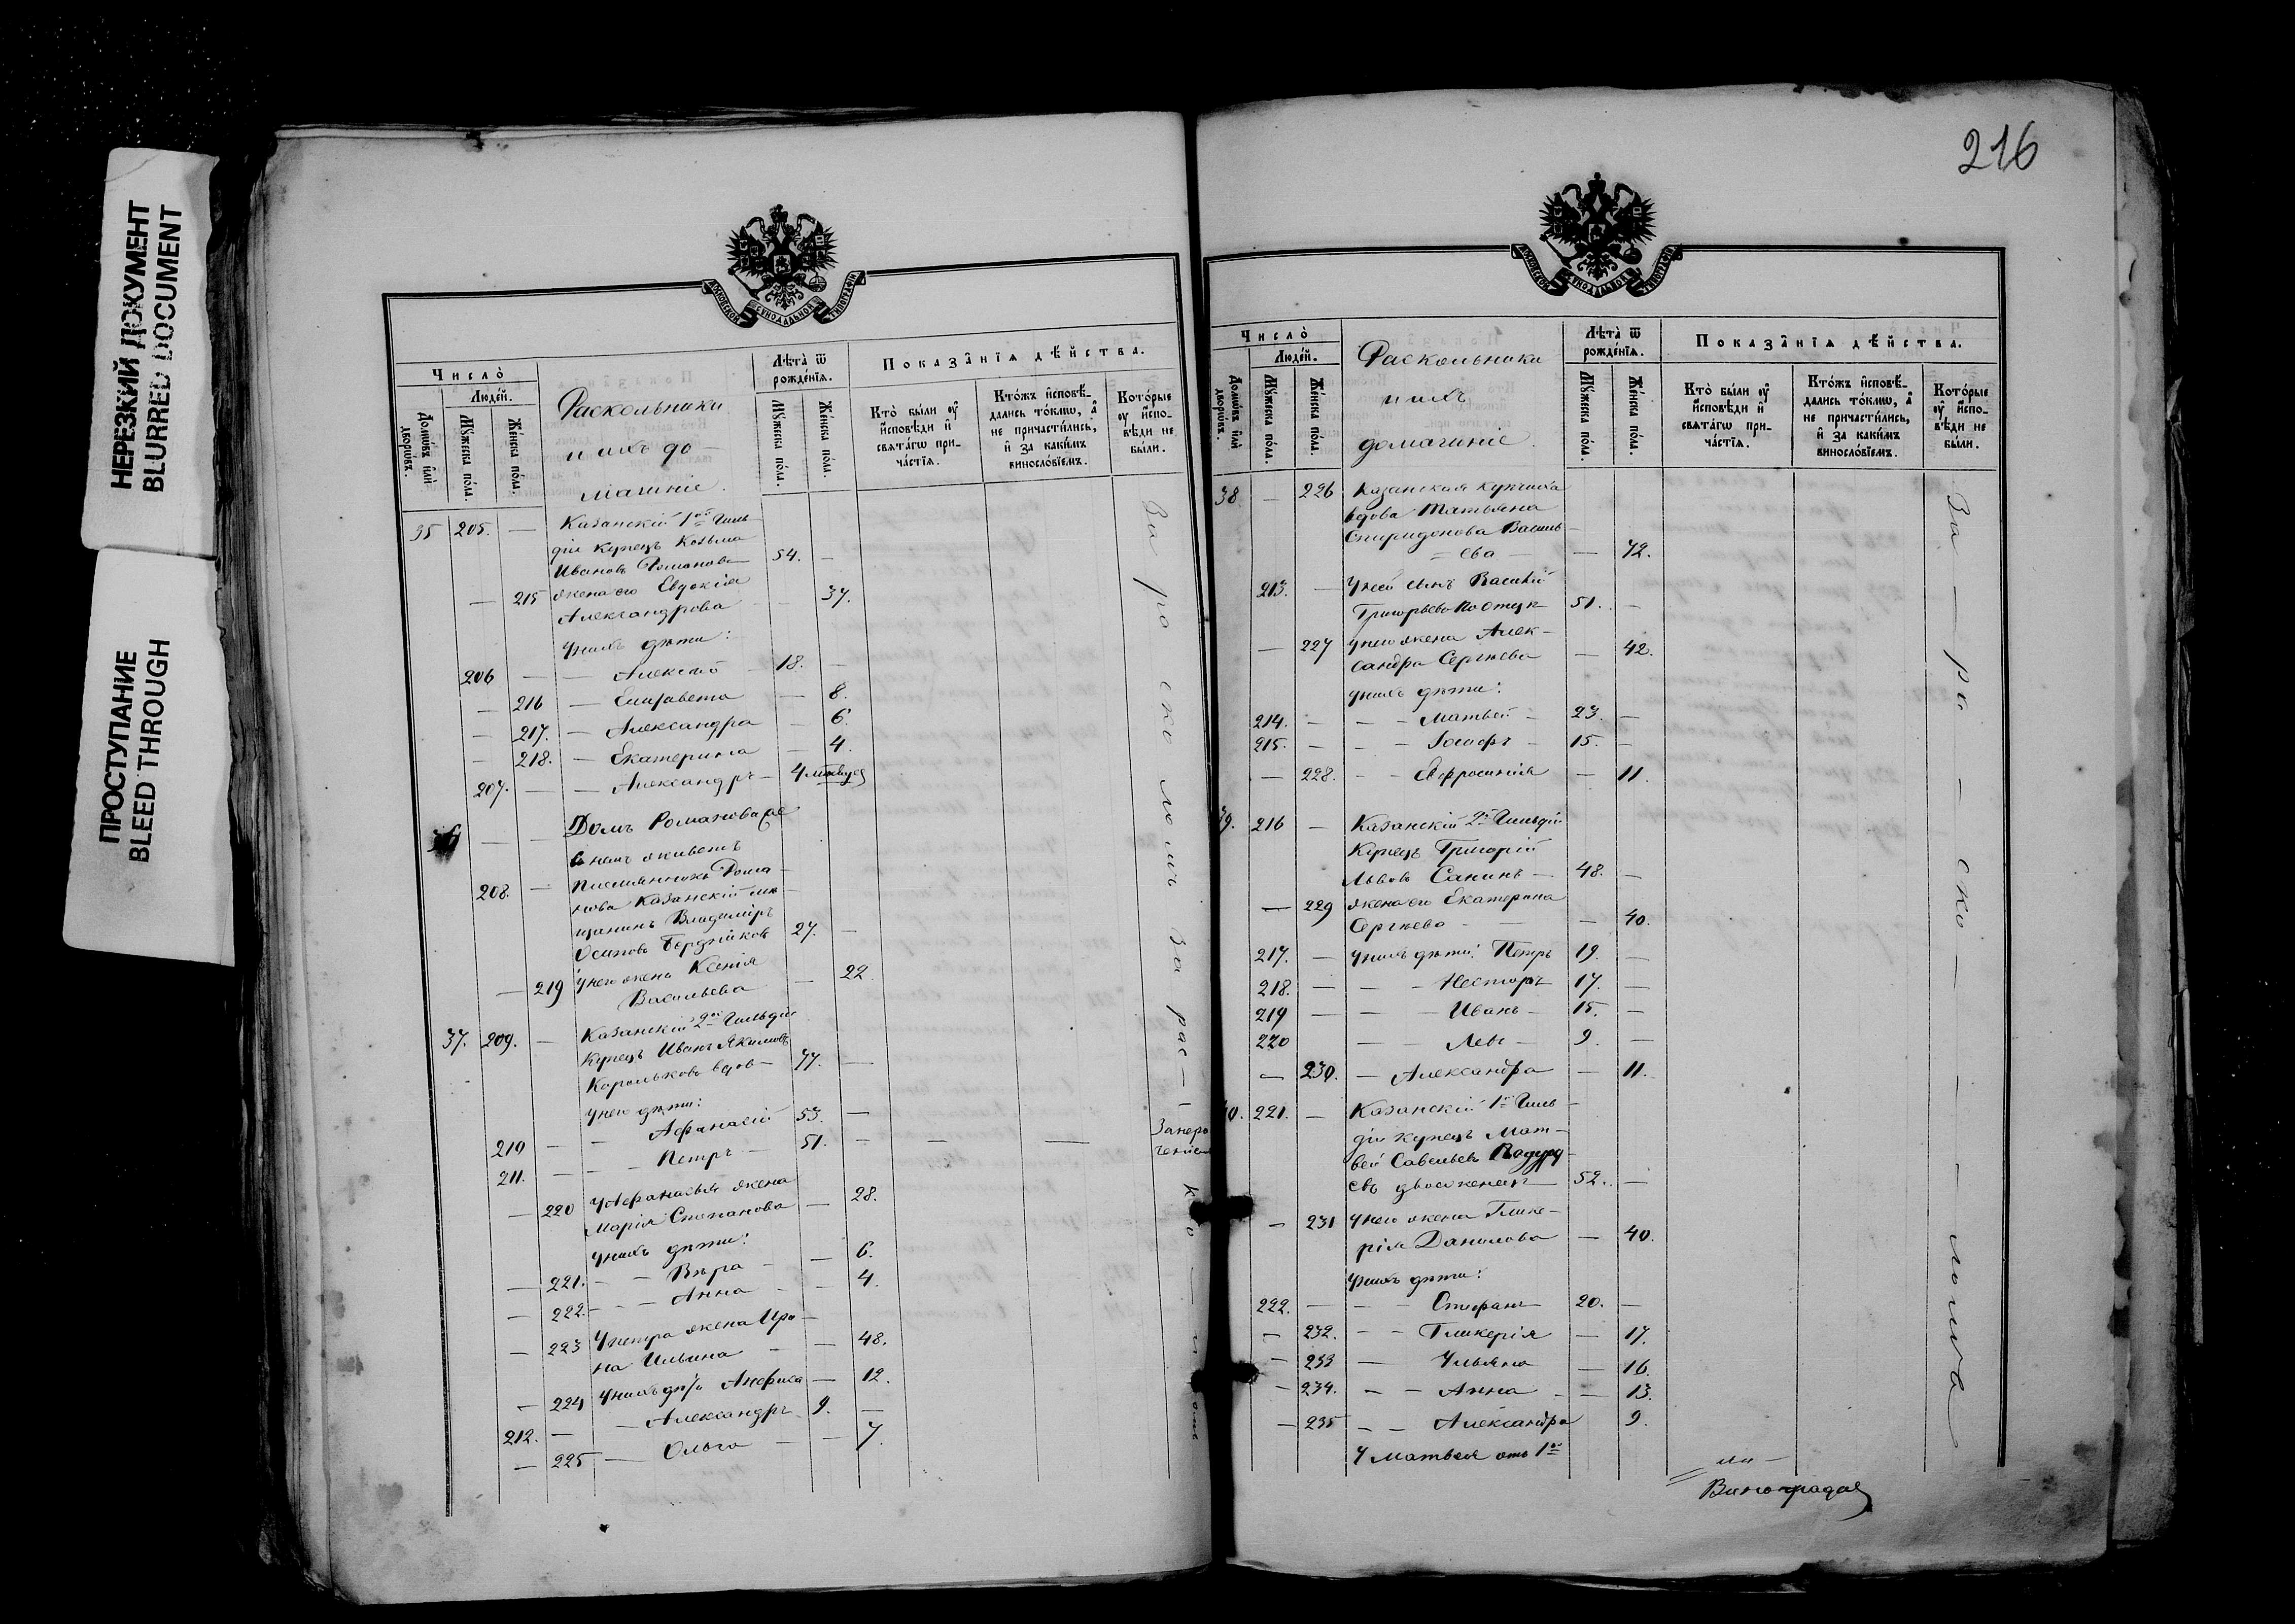 НЕРЕЗКИЙ ДОКУМЕНТ
BLURRED DOCUMENT
ПРОСТУПАНИЕ
BLEED THROUGH
МОСКОВСКОЙ СУНОДАЛЬНОЙ ТИПОГРАФІИ
Число̀
Людéй.
Домѡ́въ и҆лѝ дворѡ́въ.
Мꙋ́жеска по́ла.
Же́нска по́ла.
Раскольники
и ихъ до-
машніе.
Лѣта̀ ѿ рожде́нїѧ.
Мꙋ́жеска по́ла.
Же́нска по́ла.
Показа̑нїѧ дѣ́йства.
Кто̀ бы́ли ᲂу҆ и҆сповѣди и҆ свѧта́гѡ при-ча́стїѧ.
Кто́жъ и҆сповѣ́-дались то́кмѡ, а҆ не причасти́лись, и҆ за каки́мъ винослóвїемъ.
Кото́рые ᲂу҆ и҆спо-вѣди не бы́ли.
35 205. — Казанскій 1ой Гиль-
діи купецъ Козьма
Ивановъ Романовъ 54. —
— 215 жена его Евдокія
Александрова — 37.
У нихъ дѣти:
206 — — Алексѣй 18. —
— 216 — Елисавета — 8.
— 217. — Александра — 6.
— 218. — Екатерина — 4.
207. — — Александръ — 4 мѣсяца
36 — — Домъ Романова же
въ немъ живетъ
208. — племянникъ Рома-
нова Казанскій мѣ-
щанинъ Владиміръ
Осиповъ 27. —
— 219 У него жена Ксенія
Васильева — 22.
37. 209. — Казанскій 2ой Гильдіи
купецъ Иванъ Якимовъ
Корольковъ вдов— 77. —
У него дѣти:
210 — — Афанасій 53. —
211. — — Петръ — 51. — — —
— 220 У Афанасія жена
Марія Степанова — 28.
У нихъ дѣти:
— 221. — — Вѣра — 6.
— 222. — — Анна — 4.
— 223 У Петра жена Ири-
на Ильина — 48.
— 224 У нихъ дѣти Анфиса — 12.
212. — — Александръ 9. —
— 225 — Ольга — 7.
За рас-
ко-
ломъ
216
МОСКОВСКОЙ СУНОДАЛЬНОЙ ТИПОГРАФІИ
Число̀
Людéй.
Домѡ́въ и҆лѝ дворѡ́въ.
Мꙋ́жеска по́ла.
Же́нска по́ла.
Раскольники
и ихъ
домашніе.
Лѣта̀ ѿ рожде́нїѧ.
Мꙋ́жеска по́ла.
Же́нска по́ла.
Показа̑нїѧ дѣ́йства.
Кто̀ бы́ли ᲂу҆ и҆сповѣди и҆ свѧта́гѡ при-ча́стїѧ.
Кто́жъ и҆сповѣ́-дались то́кмѡ, а҆ не причасти́лись, и҆ за каки́мъ винослóвїемъ.
Кото́рые ᲂу҆ и҆спо-вѣди не бы́ли.
38 — 226 Казанская купчиха
вдова Татьяна
Спиридонова Василь-
ева — — 72.
213. — У ней сынъ Василій
Григорьевъ 51. —
— 227 У него жена Алек-
сандра Сергѣева — 42.
У нихъ дѣти:
214. — — — Матвѣй — 23. —
215. — — — Іосифъ — 15. —
— 228. — — Евфросинія — 11.
39. 216 — Казанскій 2й Гильдіи
Купецъ Григорій
Львовъ Санинъ — 48. —
— 229 жена его Екатерина
Сергѣева — — 40.
217. — У нихъ дѣти: Петръ 19. —
218. — — — Несторъ 17. —
219 — — Иванъ — 15. —
220 — — Левъ — 9. —
— 230. — Александра — 11.
40. 221. — Казанскій 1й Гиль-
діи купецъ Мат-
вей Савельевъ
52. —
— 231 У него жена Глике-
рія Данилова — 40.
У нихъ дѣти:
222. — — — Стефанъ 20. —
— 232. — — Гликерія — 17.
— 233 — Ульяна — 16.
— 234. — — Анна — — 13.
— 235 — — Александра 9.
У Матвея отъ 1й
Виноградов